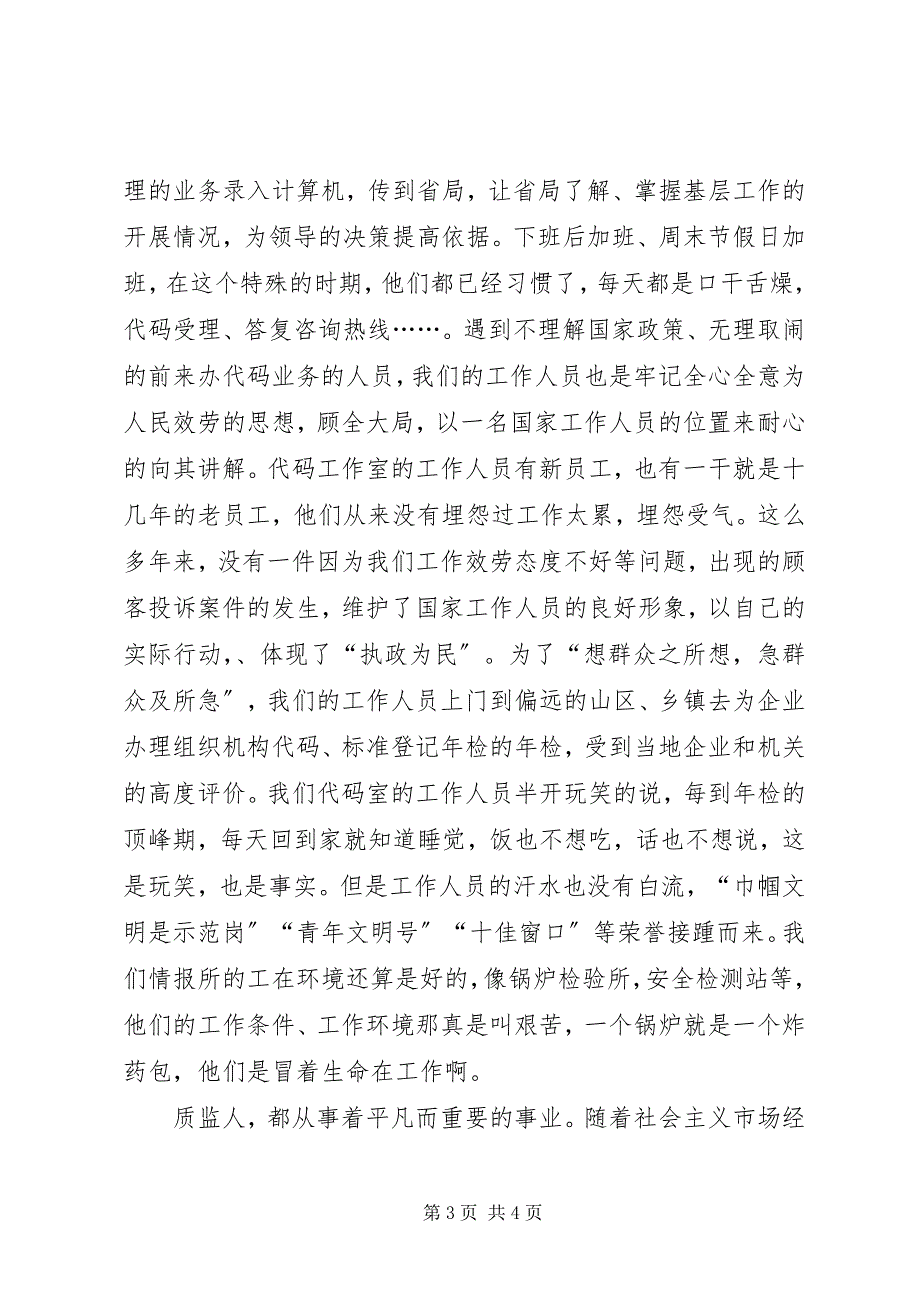 理的业务录入计算机，传到省局，让省局了解、掌握基层工作的
开展情况，为领导的决策提高依据。下班后加班、周末节假日加
班，在这个特殊的时期，他们都已经习惯了，每天都是口干舌燥，
代码受理、答复咨询热线……。遇到不理解国家政策、无理取闹
的前来办代码业务的人员，我们的工作人员也是牢记全心全意为
人民效劳的思想，顾全大局，以一名国家工作人员的位置来耐心
的向其讲解。代码工作室的工作人员有新员工，也有一干就是十
几年的老员工，他们从来没有埋怨过工作太累，埋怨受气。这么
多年来，没有一件因为我们工作效劳态度不好等问题，出现的顾
客投诉案件的发生，维护了国家工作人员的良好形象，以自己的
实际行动，、体现了“执政为民〞。为了“想群众之所想，急群
众及所急〞，我们的工作人员上门到偏远的山区、乡镇去为企业
办理组织机构代码、标准登记年检的年检，受到当地企业和机关
的高度评价。我们代码室的工作人员半开玩笑的说，每到年检的
顶峰期，每天回到家就知道睡觉，饭也不想吃，话也不想说，这
是玩笑，也是事实。但是工作人员的汗水也没有白流，“巾帼文
明是示范岗〞“青年文明号〞“十佳窗口〞等荣誉接踵而来。我
们情报所的工在环境还算是好的，像锅炉检验所，安全检测站等，
他们的工作条件、工作环境那真是叫艰苦，一个锅炉就是一个炸
药包，他们是冒着生命在工作啊。
质监人，都从事着平凡而重要的事业。随着社会主义市场经
第 3 页 共 4 页